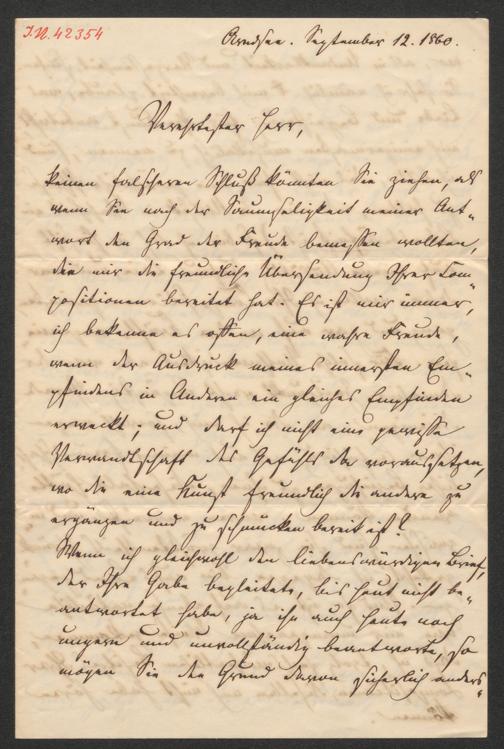 J.N. 42354
Arendsee. September 12. 1860.
Verehrtester Herr,
keinen falscheren Schluß könnten Sie ziehen, als
wenn Sie nach der Saumseligkeit meiner Ant-
wort den Grad der Freude bemessen wollten,
die mir die freundliche Übersendung Ihrer Com-
positionen bereitet hat. Es ist mir immer,
ich bekenne es offen, eine wahre Freude,
wenn der Ausdruck meines innersten Em-
pfindens in Anderen ein gleiches Empfinden
erweckt; und darf ich nicht eine gewisse
Verwandtschaft des Gefühls da voraussetzen,
wo die eine Kunst freundlich die andere zu
ergänzen und zu schmücken bereit ist?
Wenn ich gleichwohl den liebenswürdigen Brief,
der Ihre Gabe begleitete, bis heut nicht be-
antwortet habe, ja ihn auch heute noch
ungern und unvollständig beantworte, so
mögen Sie den Grund davon sicherlich anders-